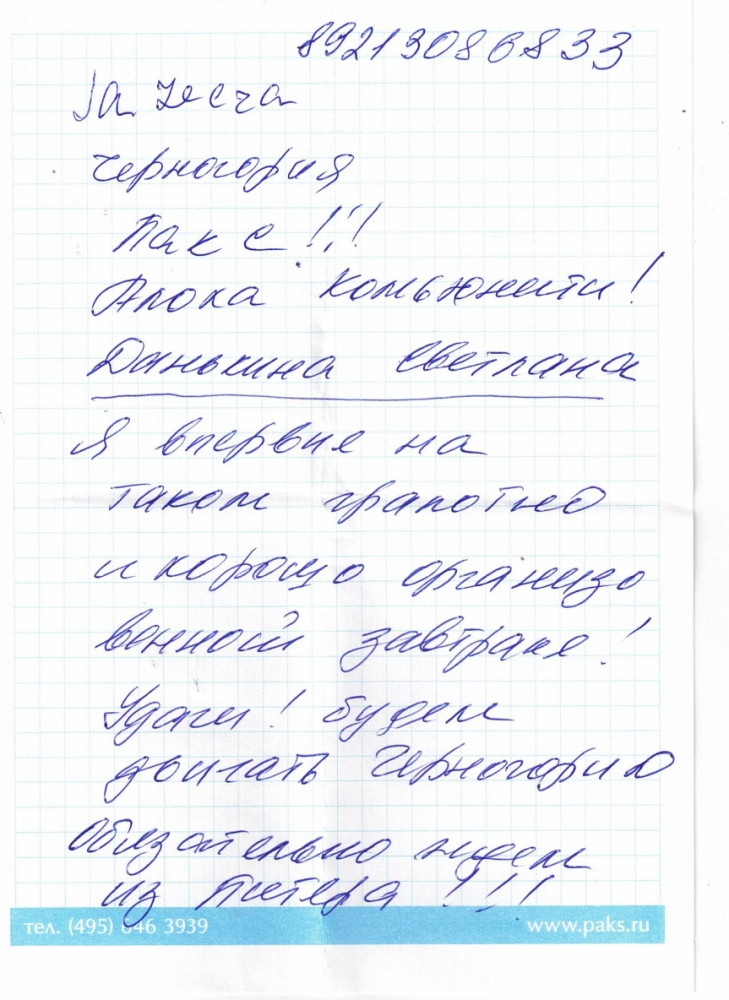 89213086833
Черногория
Пакс!!!
Алола комьюнити!
Данькина Светлана
я впервые на
таком грамотно
и хорошо организо
ванной завтраке!
Удачи! будем
двигать Черногорию
Обязательно ждем
из Питера!!!
тел. (495) 646 3939
www.paks.ru